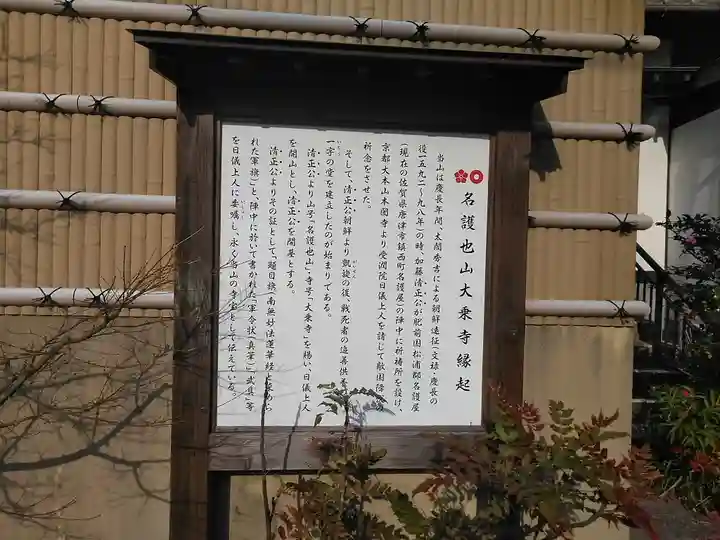 名護也山大乗寺縁起
当山は慶長年間、太閤秀吉による朝鮮遠征(文禄・慶長の
役一五九二〜九八年)の時、加藤清正公が肥前国松浦郡名護屋
(現在の佐賀県唐津市鎮西町名護屋)の陣中に祈祷所を設け、
京都大本山本圀寺より受潤院日儀上人を請じて敵国降
祈念をさせた。
そして、清正公朝鮮より凱旋の後、戦死者の追善供養
一宇の堂を建立したのが始まりである。
清正公より山号「名護也山」・寺号「大乗寺」を賜い、日儀上人
を開山とし、清正公を開基とする。
清正公よりその証として、「題目旗」南無妙法蓮華経と
れた軍旗)と、陣中に於いて書かれた「軍令状(真筆)」、「武具」等
を日儀上人に委嘱し、永く当山の寺宝として伝えている。